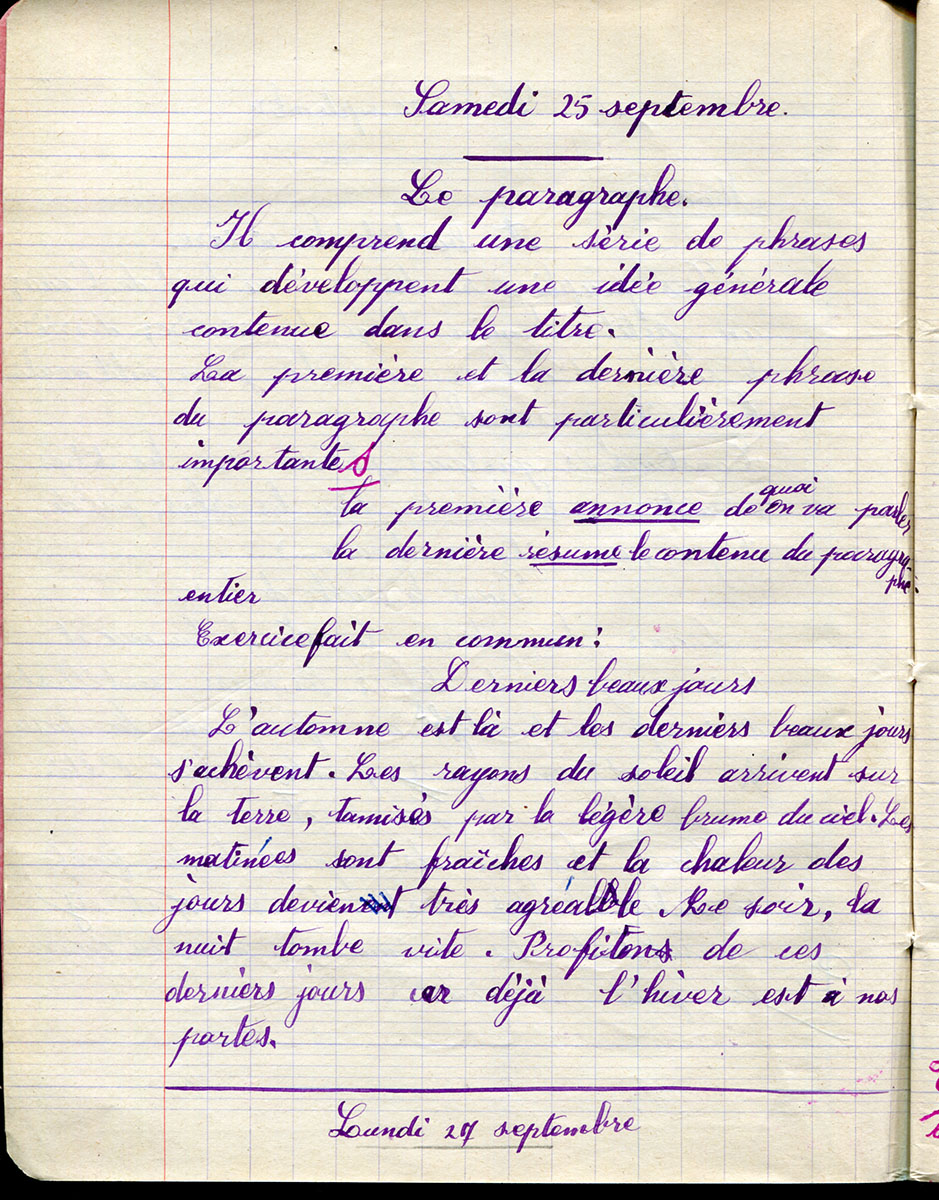 Samedi 25 septembre.
Le paragraphe.
Il comprend une série de phrases
qui développent une idée générale
contenue dans le titre.
La première et la dernière phrase
du paragraphe sont particulièrement
importantes
la première annonce de quoi on va parler
la dernière résume le contenu du paragra-
phe.
entier
Exercice fait en commun :
Derniers beaux jours
L'automne est là et les derniers beaux jours
s'achèvent. Les rayons du soleil arrivent sur
la terre, tamisés par la légère brume du ciel. Les
matinées sont fraîches et la chaleur des
jours devient très agréable. Le soir, la
nuit tombe vite. Profitons de ces
derniers jours car déjà l'hiver est à nos
portes.
Lundi 27 septembre